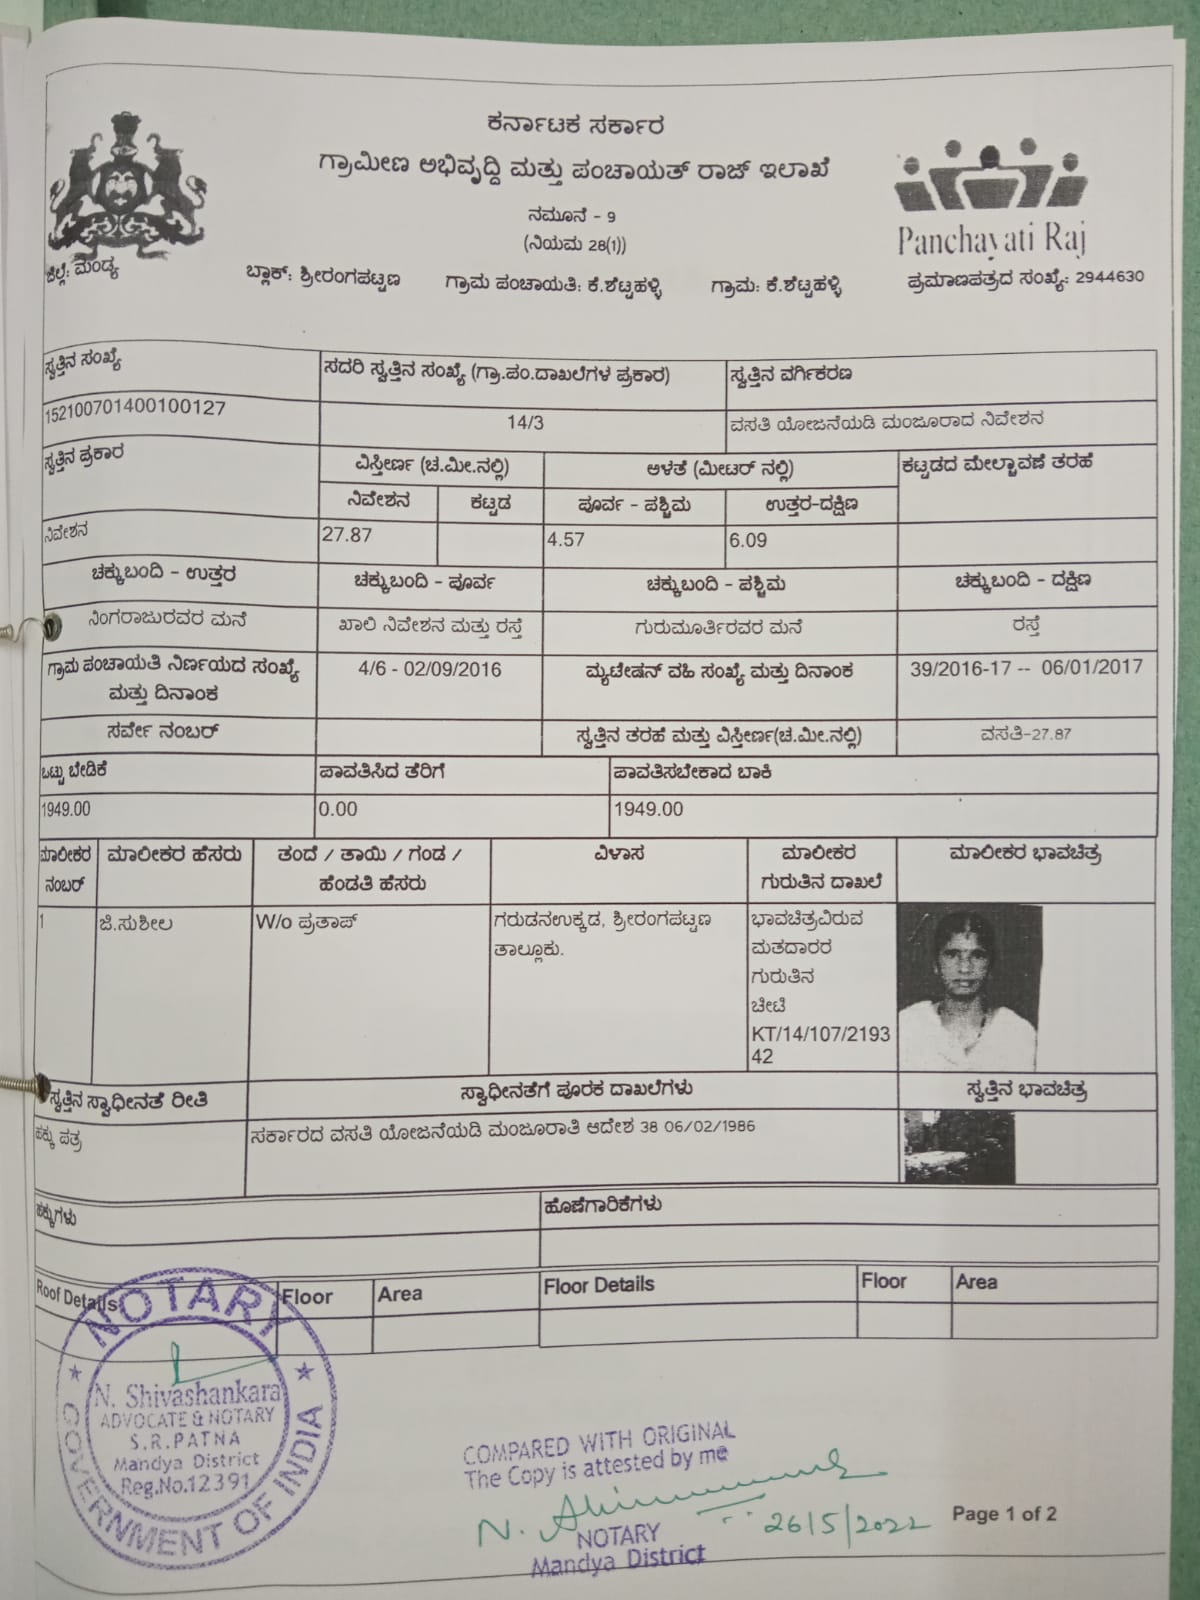 ಕರ್ನಾಟಕ ಸರ್ಕಾರ
ಗ್ರಾಮೀಣ ಅಭಿವೃದ್ಧಿ ಮತ್ತು ಪಂಚಾಯತ್ ರಾಜ್ ಇಲಾಖೆ
ನಮೂನೆ - 9
(ನಿಯಮ 28(1))
Panchayati Raj
ಜಿಲ್ಲೆ: ಮಂಡ್ಯ ಬ್ಲಾಕ್: ಶ್ರೀರಂಗಪಟ್ಟಣ ಗ್ರಾಮ ಪಂಚಾಯತಿ: ಕೆ.ಶೆಟ್ಟಹಳ್ಳಿ ಗ್ರಾಮ: ಕೆ.ಶೆಟ್ಟಹಳ್ಳಿ ಪ್ರಮಾಣಪತ್ರದ ಸಂಖ್ಯೆ: 2944630
ಸ್ವತ್ತಿನ ಸಂಖ್ಯೆ ಸದರಿ ಸ್ವತ್ತಿನ ಸಂಖ್ಯೆ (ಗ್ರಾ.ಪಂ.ದಾಖಲೆಗಳ ಪ್ರಕಾರ) ಸ್ವತ್ತಿನ ವರ್ಗಿಕರಣ
152100701400100127 14/3 ವಸತಿ ಯೋಜನೆಯಡಿ ಮಂಜೂರಾದ ನಿವೇಶನ
ಸ್ವತ್ತಿನ ಪ್ರಕಾರ ವಿಸ್ತೀರ್ಣ (ಚ.ಮೀ.ನಲ್ಲಿ) ಅಳತೆ (ಮೀಟರ್ ನಲ್ಲಿ) ಕಟ್ಟಡದ ಮೇಲ್ಚಾವಣೆ ತರಹೆ
ನಿವೇಶನ ಕಟ್ಟಡ ಪೂರ್ವ - ಪಶ್ಚಿಮ ಉತ್ತರ-ದಕ್ಷಿಣ
ನಿವೇಶನ 27.87 4.57 6.09
ಚಕ್ಕುಬಂದಿ - ಉತ್ತರ ಚಕ್ಕುಬಂದಿ - ಪೂರ್ವ ಚಕ್ಕುಬಂದಿ - ಪಶ್ಚಿಮ ಚಕ್ಕುಬಂದಿ - ದಕ್ಷಿಣ
ನಿಂಗರಾಜುರವರ ಮನೆ ಖಾಲಿ ನಿವೇಶನ ಮತ್ತು ರಸ್ತೆ ಗುರುಮೂರ್ತಿರವರ ಮನೆ ರಸ್ತೆ
ಗ್ರಾಮ ಪಂಚಾಯತಿ ನಿರ್ಣಯದ ಸಂಖ್ಯೆ 4/6 - 02/09/2016 ಮ್ಯುಟೇಷನ್ ವಹಿ ಸಂಖ್ಯೆ ಮತ್ತು ದಿನಾಂಕ 39/2016-17 -- 06/01/2017
ಮತ್ತು ದಿನಾಂಕ
ಸರ್ವೇ ನಂಬರ್ ಸ್ವತ್ತಿನ ತರಹೆ ಮತ್ತು ವಿಸ್ತೀರ್ಣ(ಚ.ಮೀ.ನಲ್ಲಿ) ವಸತಿ-27.87
ಒಟ್ಟು ಬೇಡಿಕೆ ಪಾವತಿಸಿದ ತೆರಿಗೆ ಪಾವತಿಸಬೇಕಾದ ಬಾಕಿ
1949.00 0.00 1949.00
ಮಾಲೀಕರ ಮಾಲೀಕರ ಹೆಸರು ತಂದೆ / ತಾಯಿ / ಗಂಡ / ವಿಳಾಸ ಮಾಲೀಕರ ಮಾಲೀಕರ ಭಾವಚಿತ್ರ
ನಂಬರ್ ಹೆಂಡತಿ ಹೆಸರು ಗುರುತಿನ ದಾಖಲೆ
1 ಜಿ.ಸುಶೀಲ W/o ಪ್ರತಾಪ್ ಗರುಡನಉಕ್ಕಡ, ಶ್ರೀರಂಗಪಟ್ಟಣ ಭಾವಚಿತ್ರವಿರುವ
ತಾಲ್ಲೂಕು. ಮತದಾರರ
ಗುರುತಿನ
ಚೀಟಿ
KT/14/107/2193
42
ಸ್ವತ್ತಿನ ಸ್ವಾಧೀನತೆ ರೀತಿ ಸ್ವಾಧೀನತೆಗೆ ಪೂರಕ ದಾಖಲೆಗಳು ಸ್ವತ್ತಿನ ಭಾವಚಿತ್ರ
ಹಕ್ಕು ಪತ್ರ ಸರ್ಕಾರದ ವಸತಿ ಯೋಜನೆಯಡಿ ಮಂಜೂರಾತಿ ಆದೇಶ 38 06/02/1986
ಹಕ್ಕುಗಳು ಹೊಣೆಗಾರಿಕೆಗಳು
Roof Details Floor Area Floor Details Floor Area
NOTARY
GOVERNMENT OF INDIA
N. Shivashankara
ADVOCATE & NOTARY
S.R.PATNA
Mandya District
Reg.No.12391
COMPARED WITH ORIGINAL
The Copy is attested by me
26/5/2022
NOTARY
Mandya District
Page 1 of 2